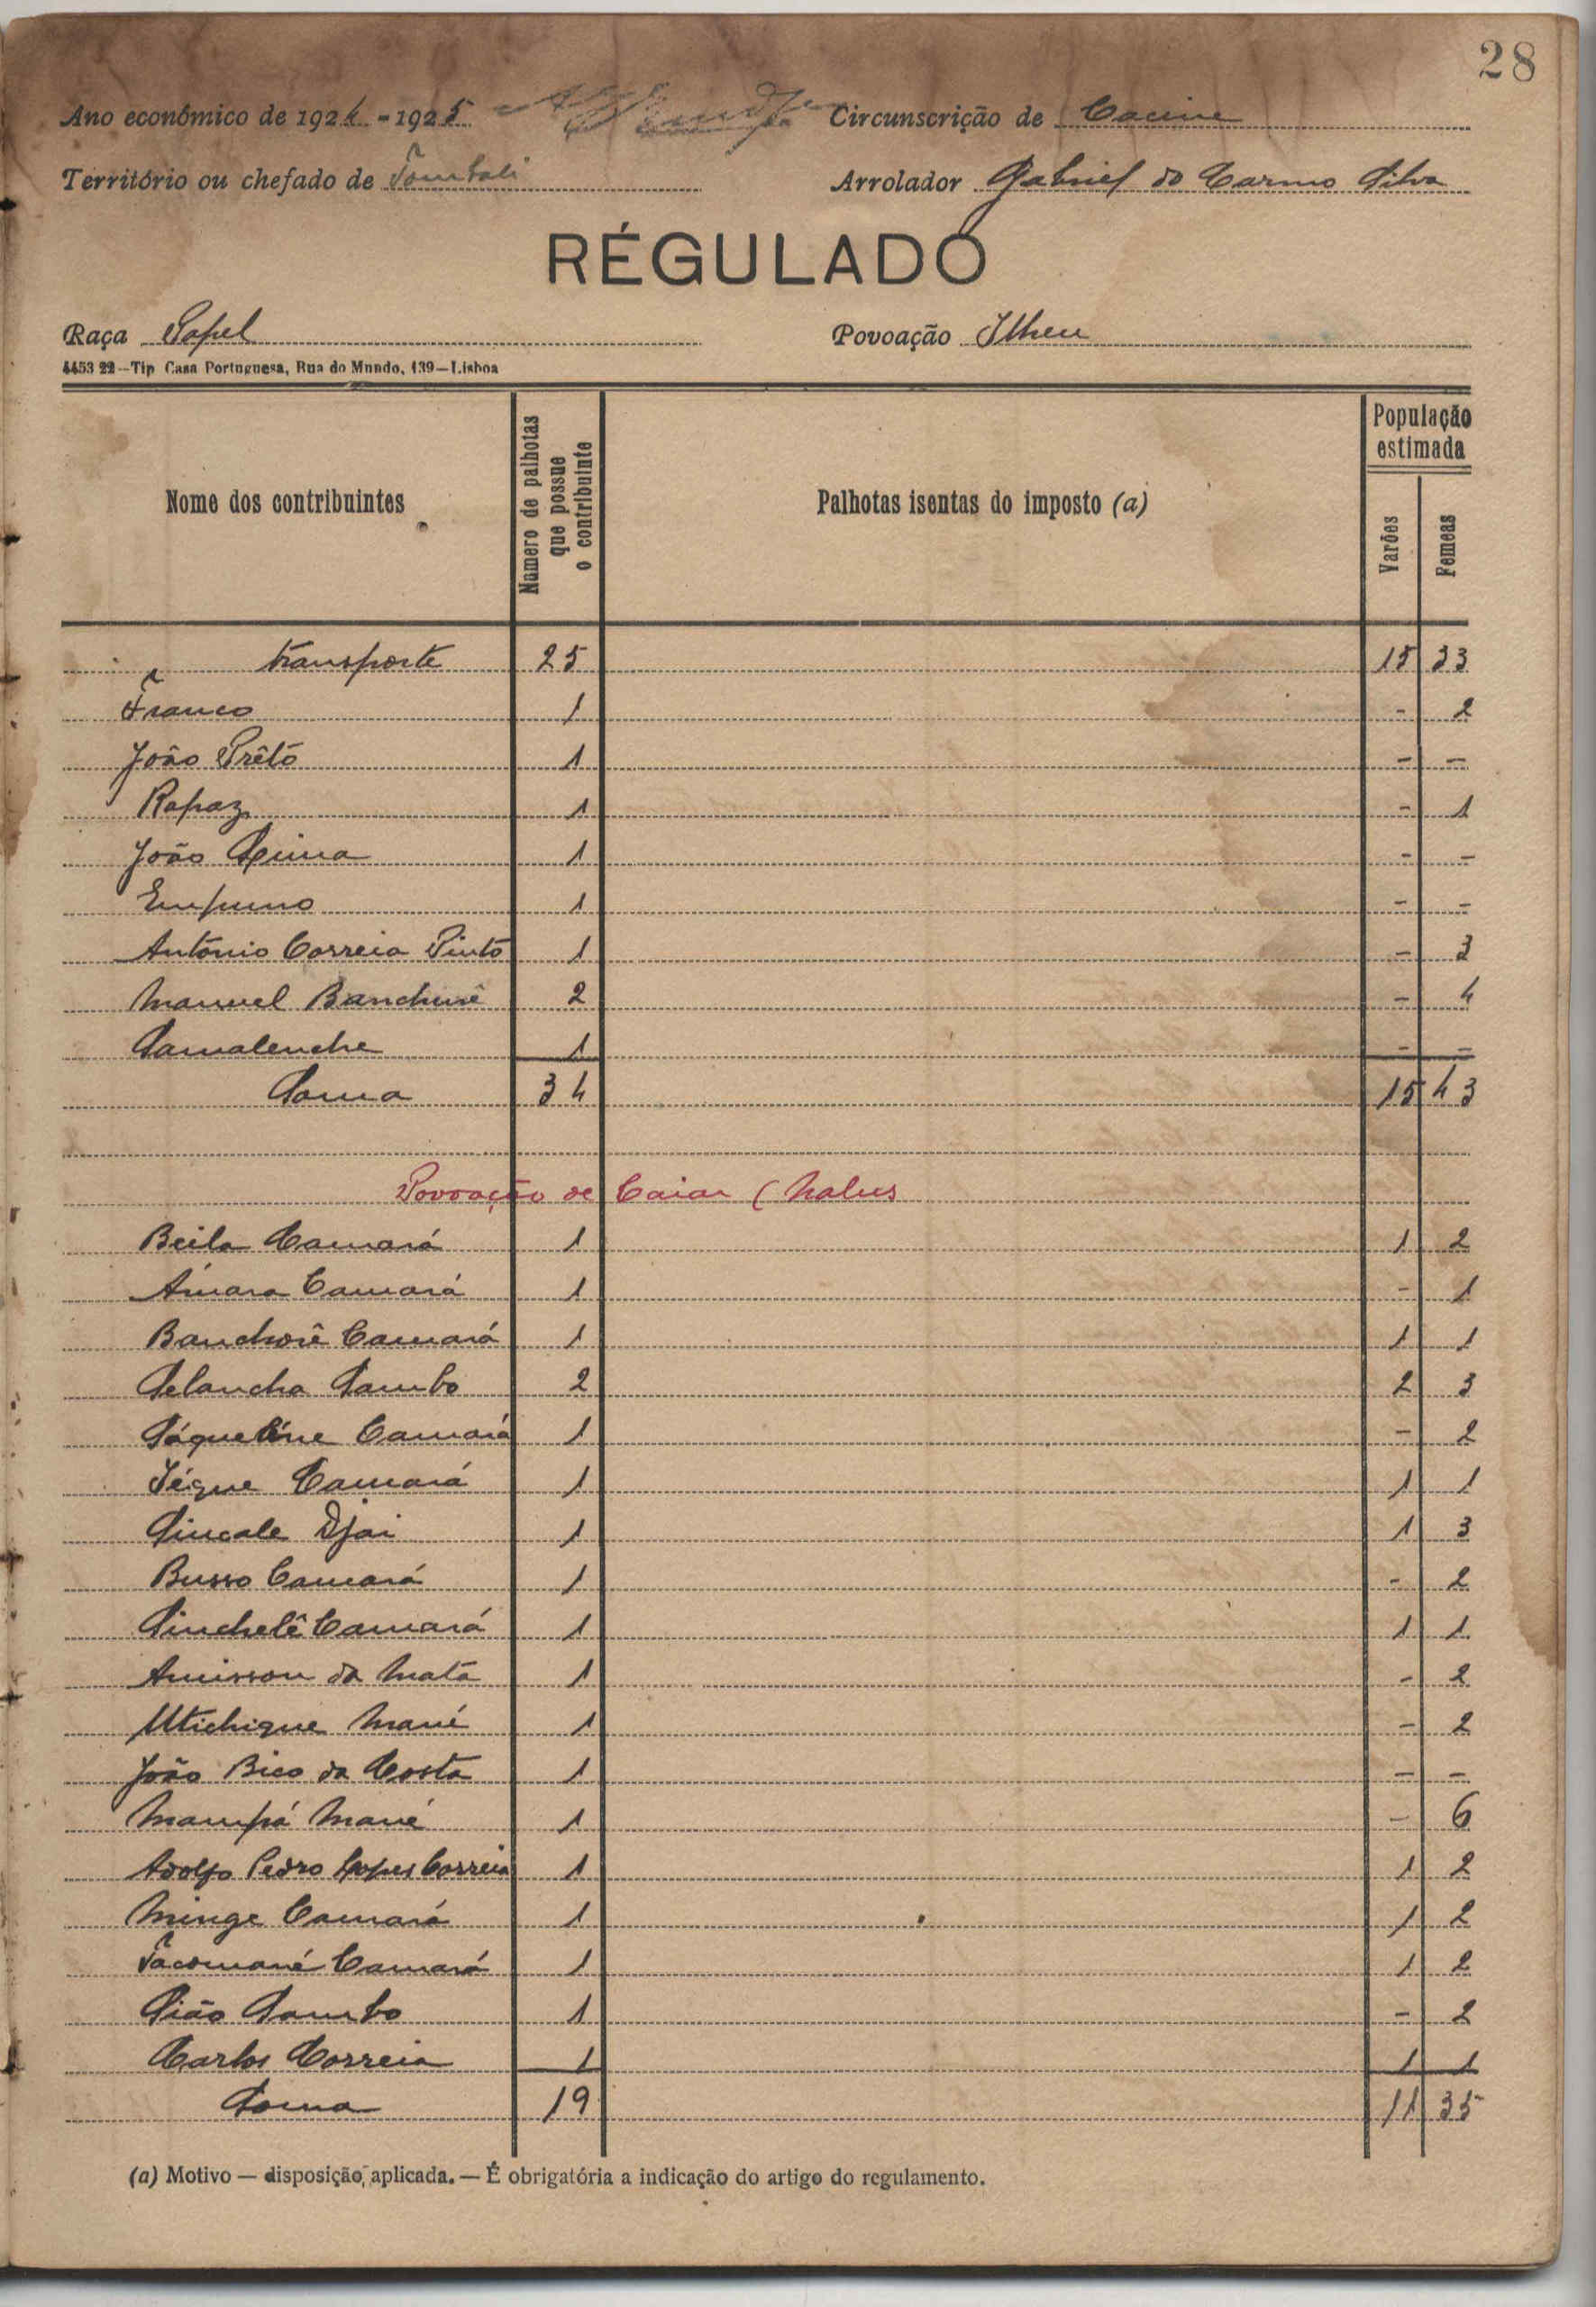 28
Ano económico de 1924-1925 Circunscrição de Cacine
Território ou chefado de Tombali Arrolador Gabriel do Carmo Silva
RÉGULADO
Raça Papel Povoação Ilheu
4453 22—Tip Casa Portuguesa, Rua do Mundo, 139—Lisboa
Nome dos contribuintes Número de palhotas que possue o contribuinte Palhotas isentas do imposto (a) População estimada Varões Femeas
transporte 25 15 33
Franco 1 - 2
João Prêto 1 - -
Rapaz 1 - 1
João 1 - -
Empumo 1 - -
António Correia Pinto 1 - 3
Manuel 2 - 4
Samalenche 1 - -
Soma 34 15 43
Povoação de Caiar (Nalus
Beila Camará 1 1 2
Amara Camará 1 - 1
Banchorê Camará 1 1 1
Selancha Sambo 2 2 3
Camará 1 - 2
Camará 1 1 1
Sincale Djai 1 1 3
Busso Camará 1 - 2
Sinchelê Camará 1 1 1
Amisson da Mata 1 - 2
Utichique Mané 1 - 2
João Bico da Costa 1 - -
Mampá Mané 1 - 6
Adolfo Pedro Lopes Correia 1 1 2
Minge Camará 1 1 2
Tacomané Camará 1 1 2
Sião Sambo 1 - 2
Carlos Correia 1 1 1
Soma 19 11 35
(a) Motivo — disposição, aplicada. — É obrigatória a indicação do artigo do regulamento.